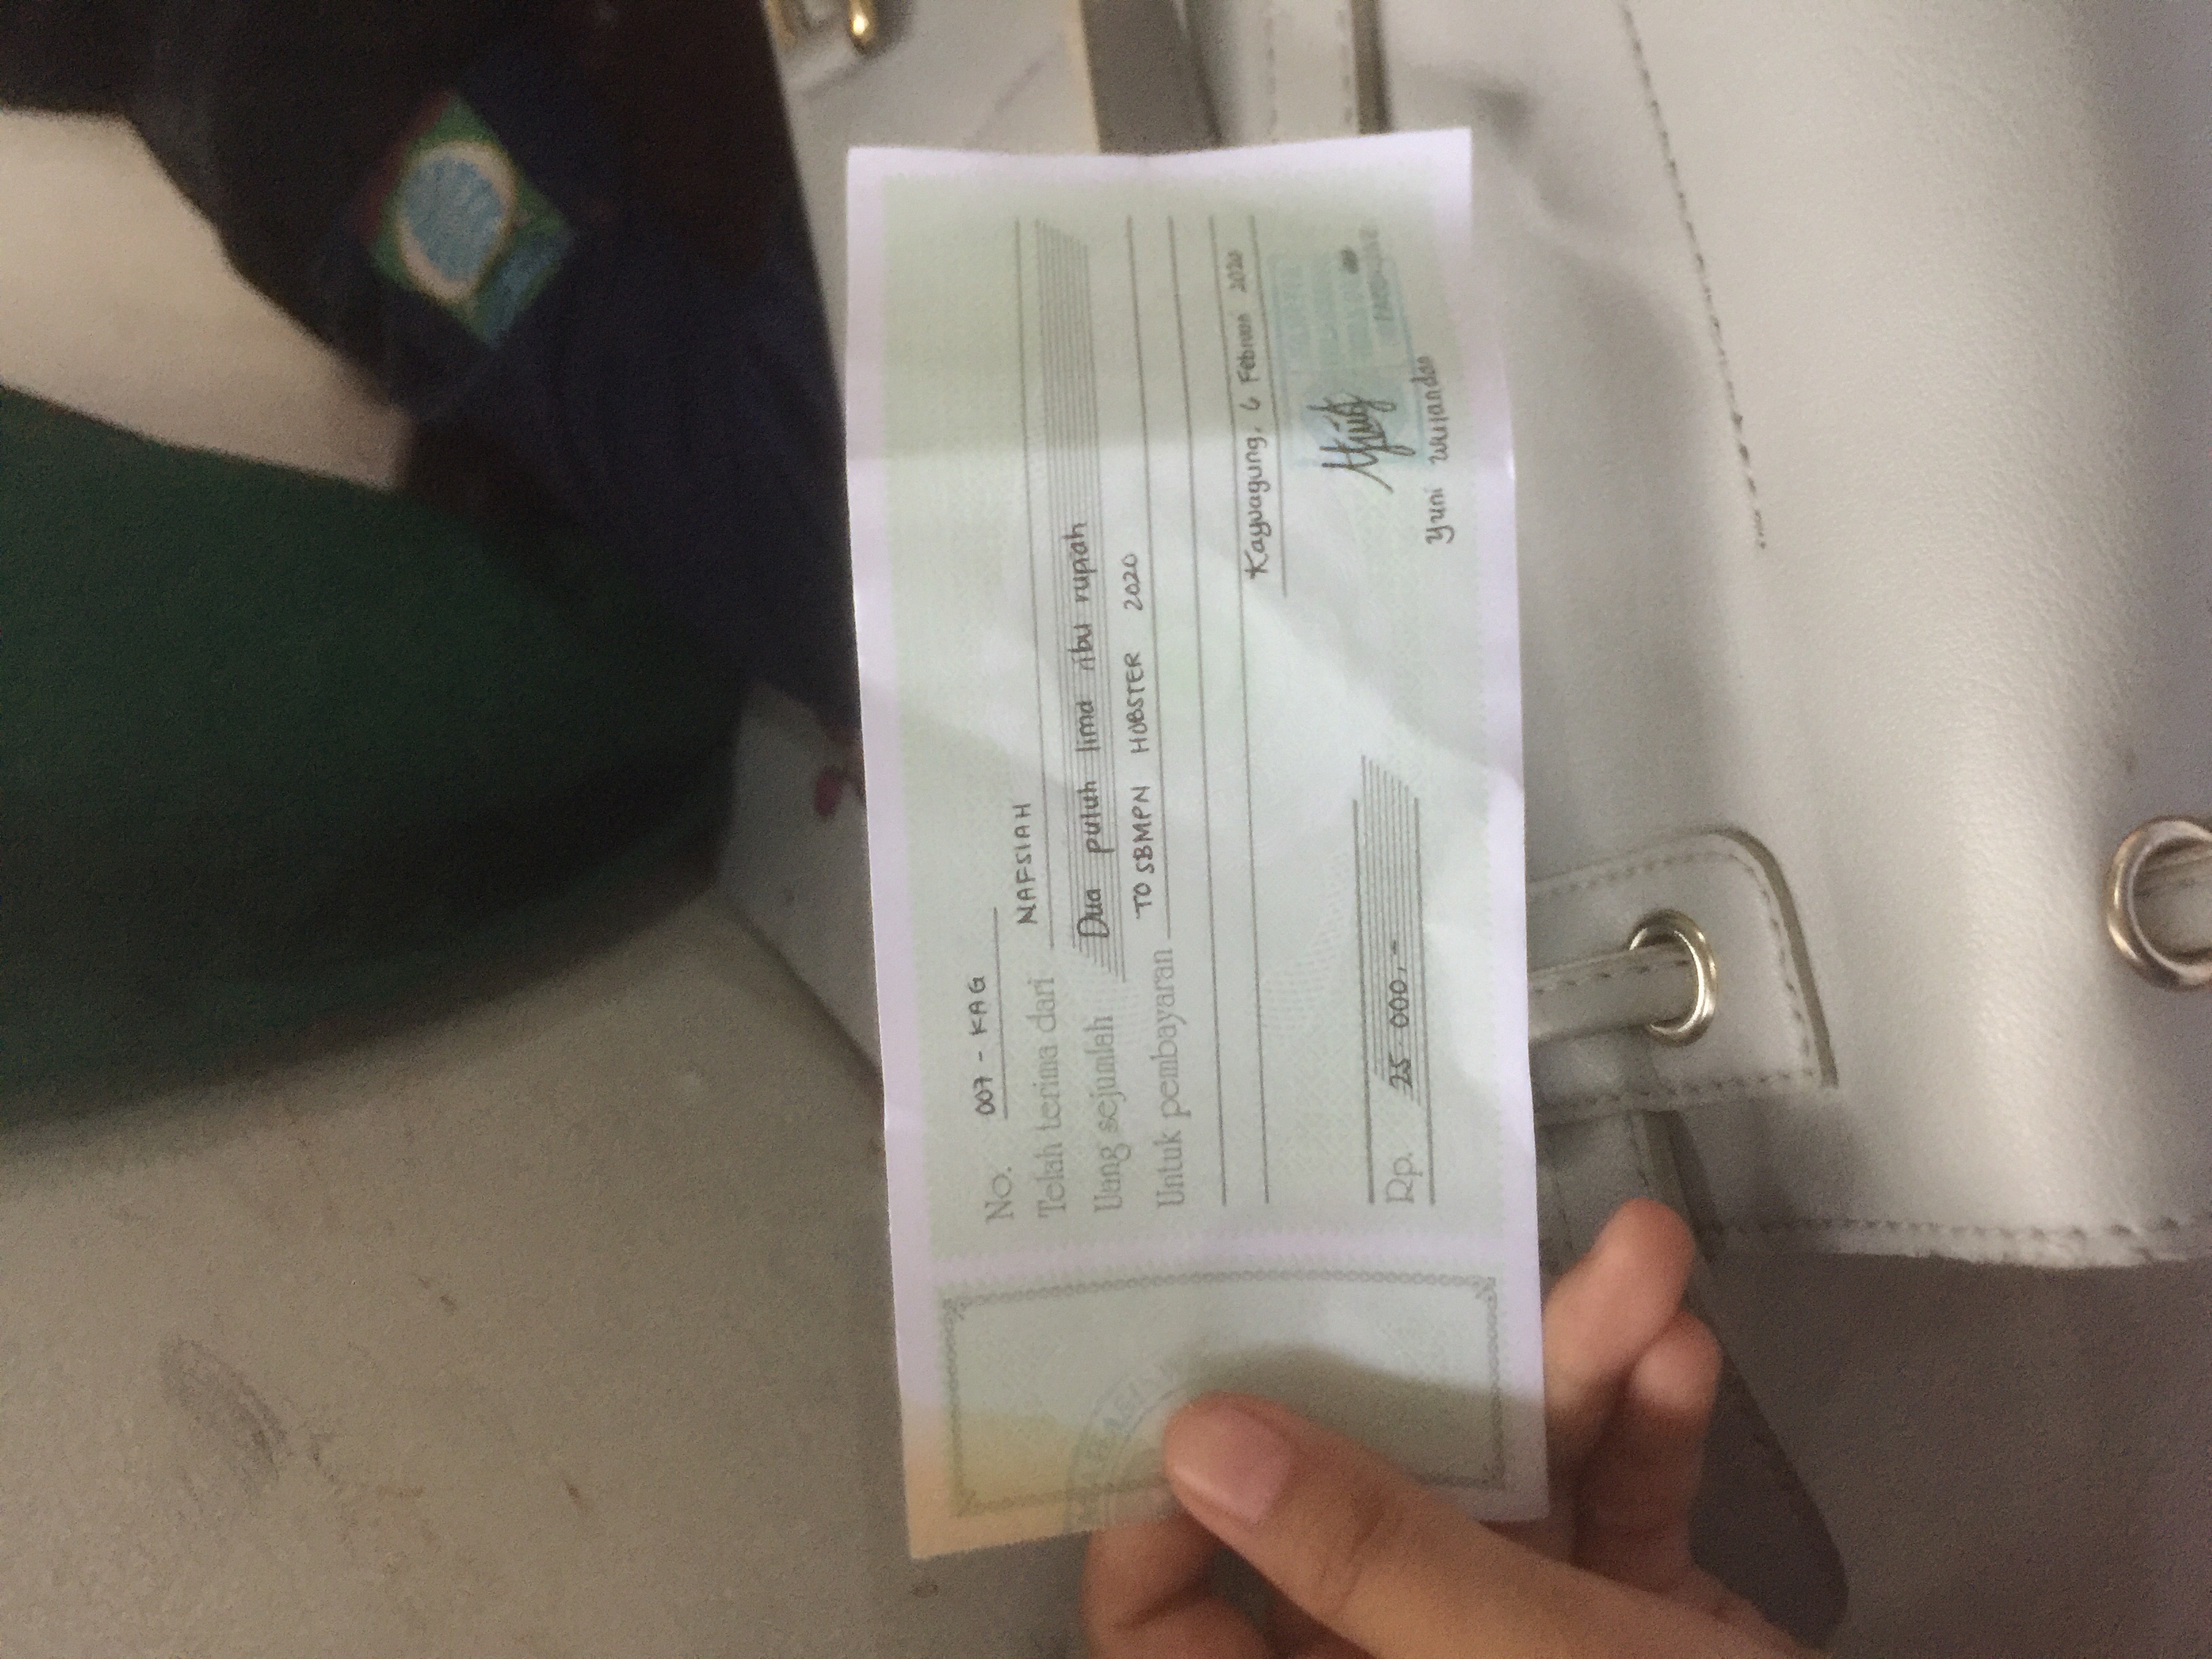 No. 007 - KAG
Telah terima dari NAFSIAH
Uang sejumlah Dua puluh lima ribu rupiah
Untuk pembayaran TO SBMPN HOBSTER 2020
Kayuagung, 6 Februari 2020
Rp. 25.000,-
Yuni Wulandari